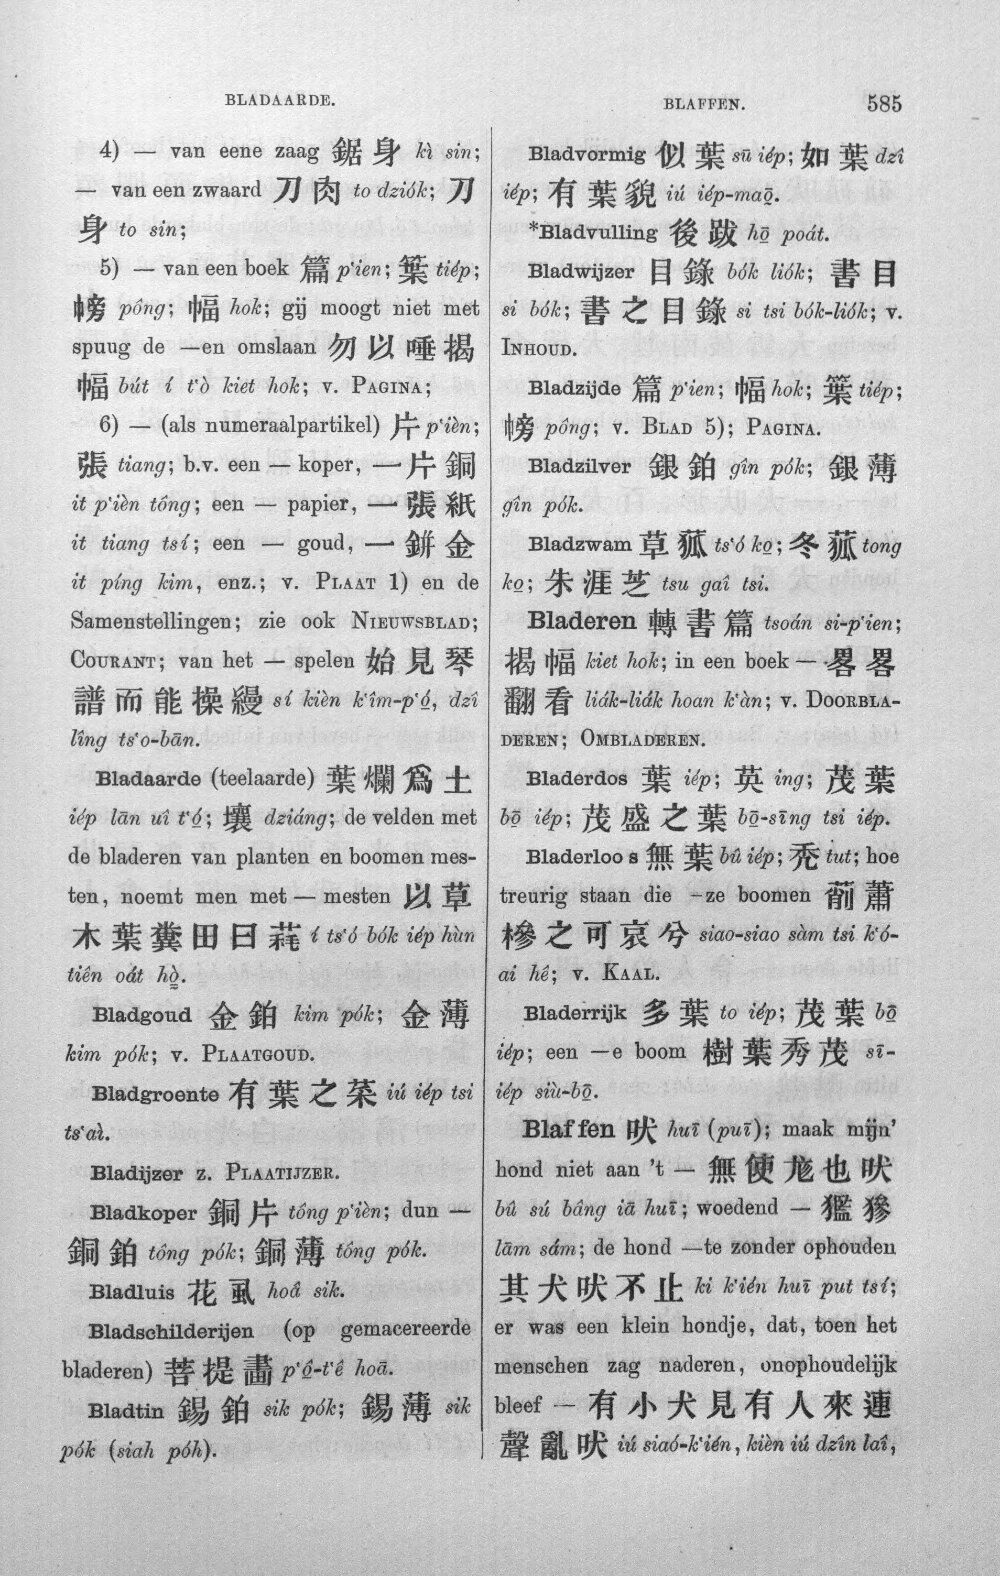 BLADAARDE.
BLAFFEN.
585
4) — van eene zaag 鋸身 kì sin;
— van een zwaard 刀肉 to dziók; 刀
身 to sin;
5) — van een boek 篇 p‘ien; 葉 tiép;
幇 póng; 幅 hok; gij moogt niet met
spuug de —en omslaan 勿以唾揭
幅 bút í t‘ò kiet hok; v. PAGINA;
6) — (als numeraalpartikel) 片 p‘ièn;
張 tiang; b.v. een — koper, 一片銅
it p‘ièn tông; een — papier, 一張紙
it tiang tsí; een — goud, 一鉼金
it píng kim, enz.; v. PLAAT 1) en de
Samenstellingen; zie ook NIEUWSBLAD;
COURANT; van het — spelen 始見琴
譜而能操縵 sí kièn k‘îm-p‘ó̤, dzî
lîng ts‘o-bān.
Bladaarde (teelaarde) 葉爛爲土
iép lān uî t‘ó̤; 壤 dziáng; de velden met
de bladeren van planten en boomen mes-
ten, noemt men met — mesten 以草
木葉糞田曰 í ts‘ó bók iép hùn
tiên oát hò̤.
Bladgoud 金鉑 kim pók; 金薄
kim pók; v. PLAATGOUD.
Bladgroente 有葉之菜 iú iép tsi
ts‘aì.
Bladijzer z. PLAATIJZER.
Bladkoper 銅片 tông p‘ièn; dun —
銅鉑 tông pók; 銅薄 tông pók.
Bladluis 花虱 hoâ sik.
Bladschilderijen (op gemacereerde
bladeren) 菩提畵 p‘ô̤-t‘ê hoā.
Bladtin 錫鉑 sik pók; 錫薄 sik
pók (siah póh).
Bladvormig 似葉 sū iép; 如葉 dzî
iép; 有葉貌 iú iép-maō̤.
*Bladvulling 後跋 hō̤ poát.
Bladwijzer 目錄 bók liók; 書目
si bók; 書之目錄 si tsi bók-liók; v.
INHOUD.
Bladzijde 篇 p‘ien; 幅 hok; 葉 tiép;
póng; v. BLAD 5); PAGINA.
Bladzilver 銀鉑 gîn pók; 銀薄
gîn pók.
Bladzwam 草菰 ts‘ó ko̤; 冬菰 tong
ko̤; 朱涯芝 tsu gaî tsi.
Bladeren 轉書篇 tsoán si-p‘ien;
揭幅 kiet hok; in een boek — 畧畧
翻看 liák-liák hoan k‘àn; v. DOORBLA-
DEREN; OMBLADEREN.
Bladerdos 葉 iép; 英 ing; 茂葉
bō̤ iép; 茂盛之葉 bō̤-sīng tsi iép.
Bladerloos 無葉 bû iép; 禿 tut; hoe
treurig staan die —ze boomen 萷蕭
槮之可哀兮 siao-siao sàm tsi k‘ó-
ai hê; v. KAAL.
Bladerrijk 多葉 to iép; 茂葉 bō̤
iép; een —e boom 樹葉秀茂 sī-
iép siù-bō̤.
Blaffen 吠 huī (puī); maak mijn’
hond niet aan ’t — 無使尨也吠
bû sú bâng iā huī; woedend — 㺝㺑
lām sám; de hond —te zonder ophouden
其犬吠不止 ki k‘ién huī put tsí;
er was een klein hondje, dat, toen het
menschen zag naderen, onophoudelijk
bleef — 有小犬見有人來連
聲亂吠 iú siaó-k‘ién, kièn iú dzîn laî,